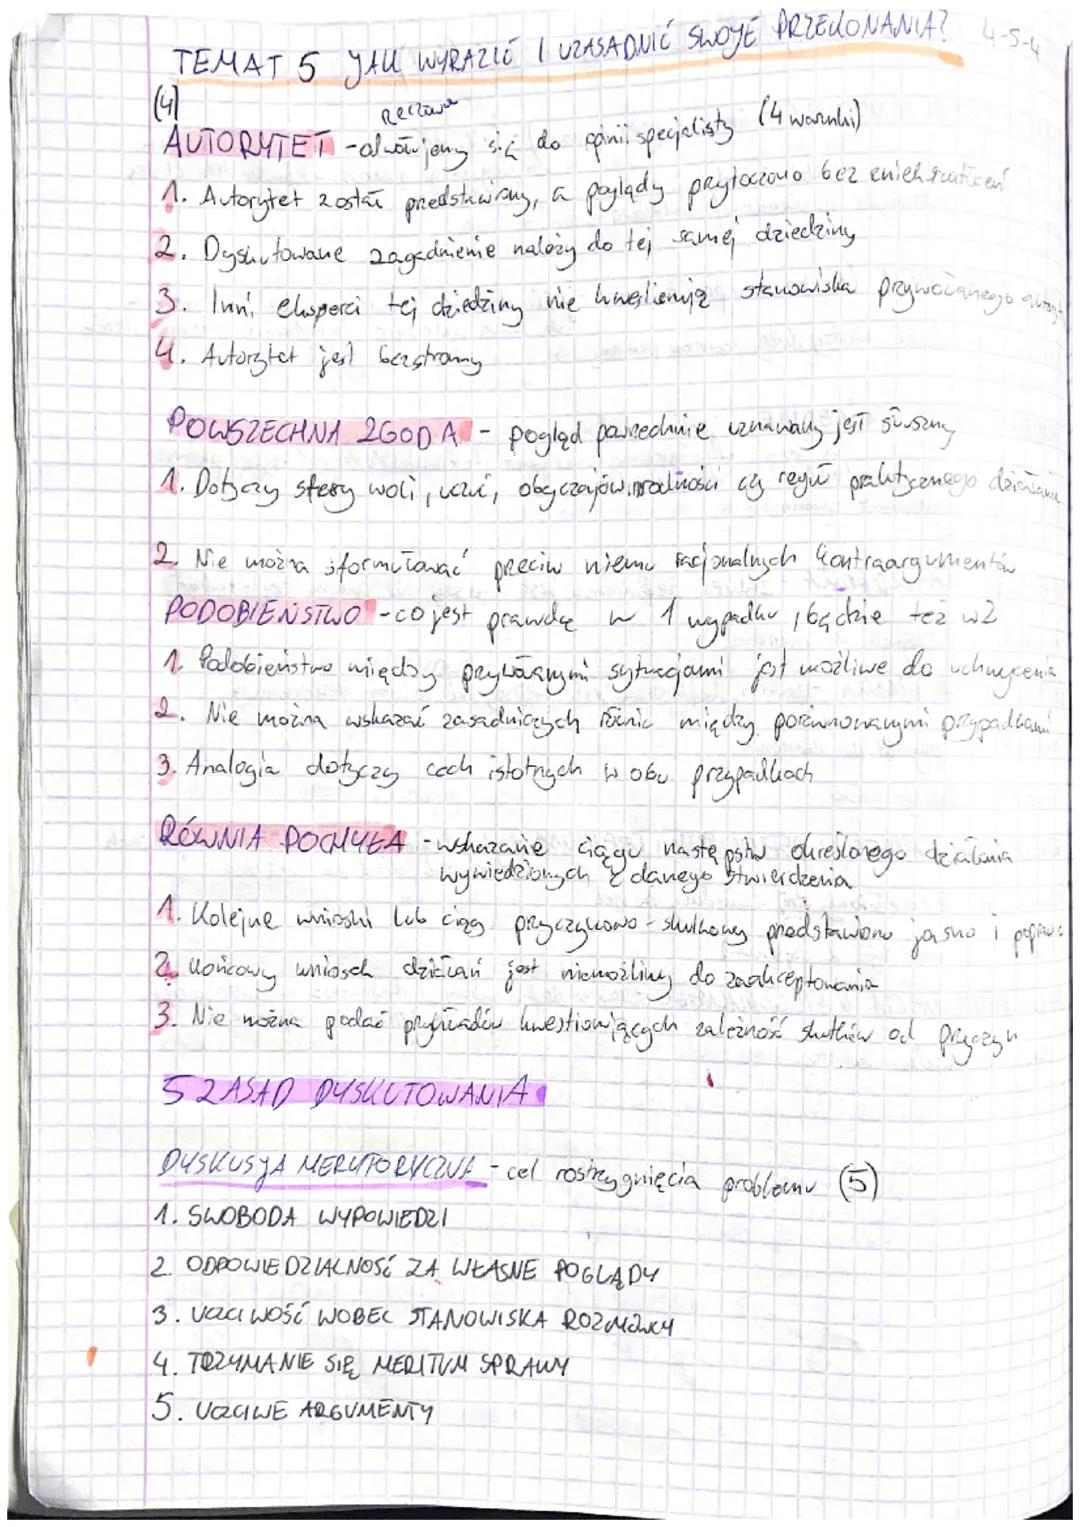 TEMAT 5 JAK WYRAZIĆ I UZASADNIĆ SWOJE PRZEKONANIA? 4-5-4
(4)
Rzeczowe
AUTORYTET - odwołujemy się do opinii specjalisty (4 warunki)
1. Autorytet został przedstawiony, a poglądy przytoczono bez zniekształceń
2. Dyskutowane zagadnienie należy do tej samej dziedziny
3. Inni eksperci tej dziedziny nie kwestionują stanowiska przywołanego
4. Autorytet jest bezstronny
POWSZECHNA ZGODA - pogląd powszechnie uznawany jest słuszny
1. Dotyczy sfery woli, uczuć, obyczajów, moralności czy reguł praktycznego działania
2. Nie można sformułować przeciw niemu racjonalnych kontraargumentów
PODOBIEŃSTWO - co jest prawdą w 1 wypadku, będzie też w 2
1. Podobieństwo między przywołanymi sytuacjami jest możliwe do uchwycenia
2. Nie można wskazać zasadniczych różnic między porównowanymi przypadkami
3. Analogia dotyczy cech istotnych w obu przypadkach
RÓWNIA POCHYŁA - wskazanie ciągu następstw określonego działania
wywiedzionych z danego stwierdzenia
1. Kolejne wnioski lub ciąg przyczynowo-skutkowy przedstawiono jasno i
2. Końcowy wniosek działań jest niemożliwy do zaakceptowania
3. Nie można podać przykładów kwestionujących zależność skutków od przyczyn
5 ZASAD DYSKUTOWANIA
DYSKUSJA MERYTORYCZNA - cel rostrzygnięcia problemu (5)
1. SWOBODA WYPOWIEDZI
2. ODPOWIEDZIALNOŚĆ ZA WŁASNE POGLĄDY
3. UCZCIWOŚĆ WOBEC STANOWISKA ROZMÓWCY
4. TRZYMANIE SIĘ MERITUM SPRAWY
5. UCZCIWE ARGUMENTY